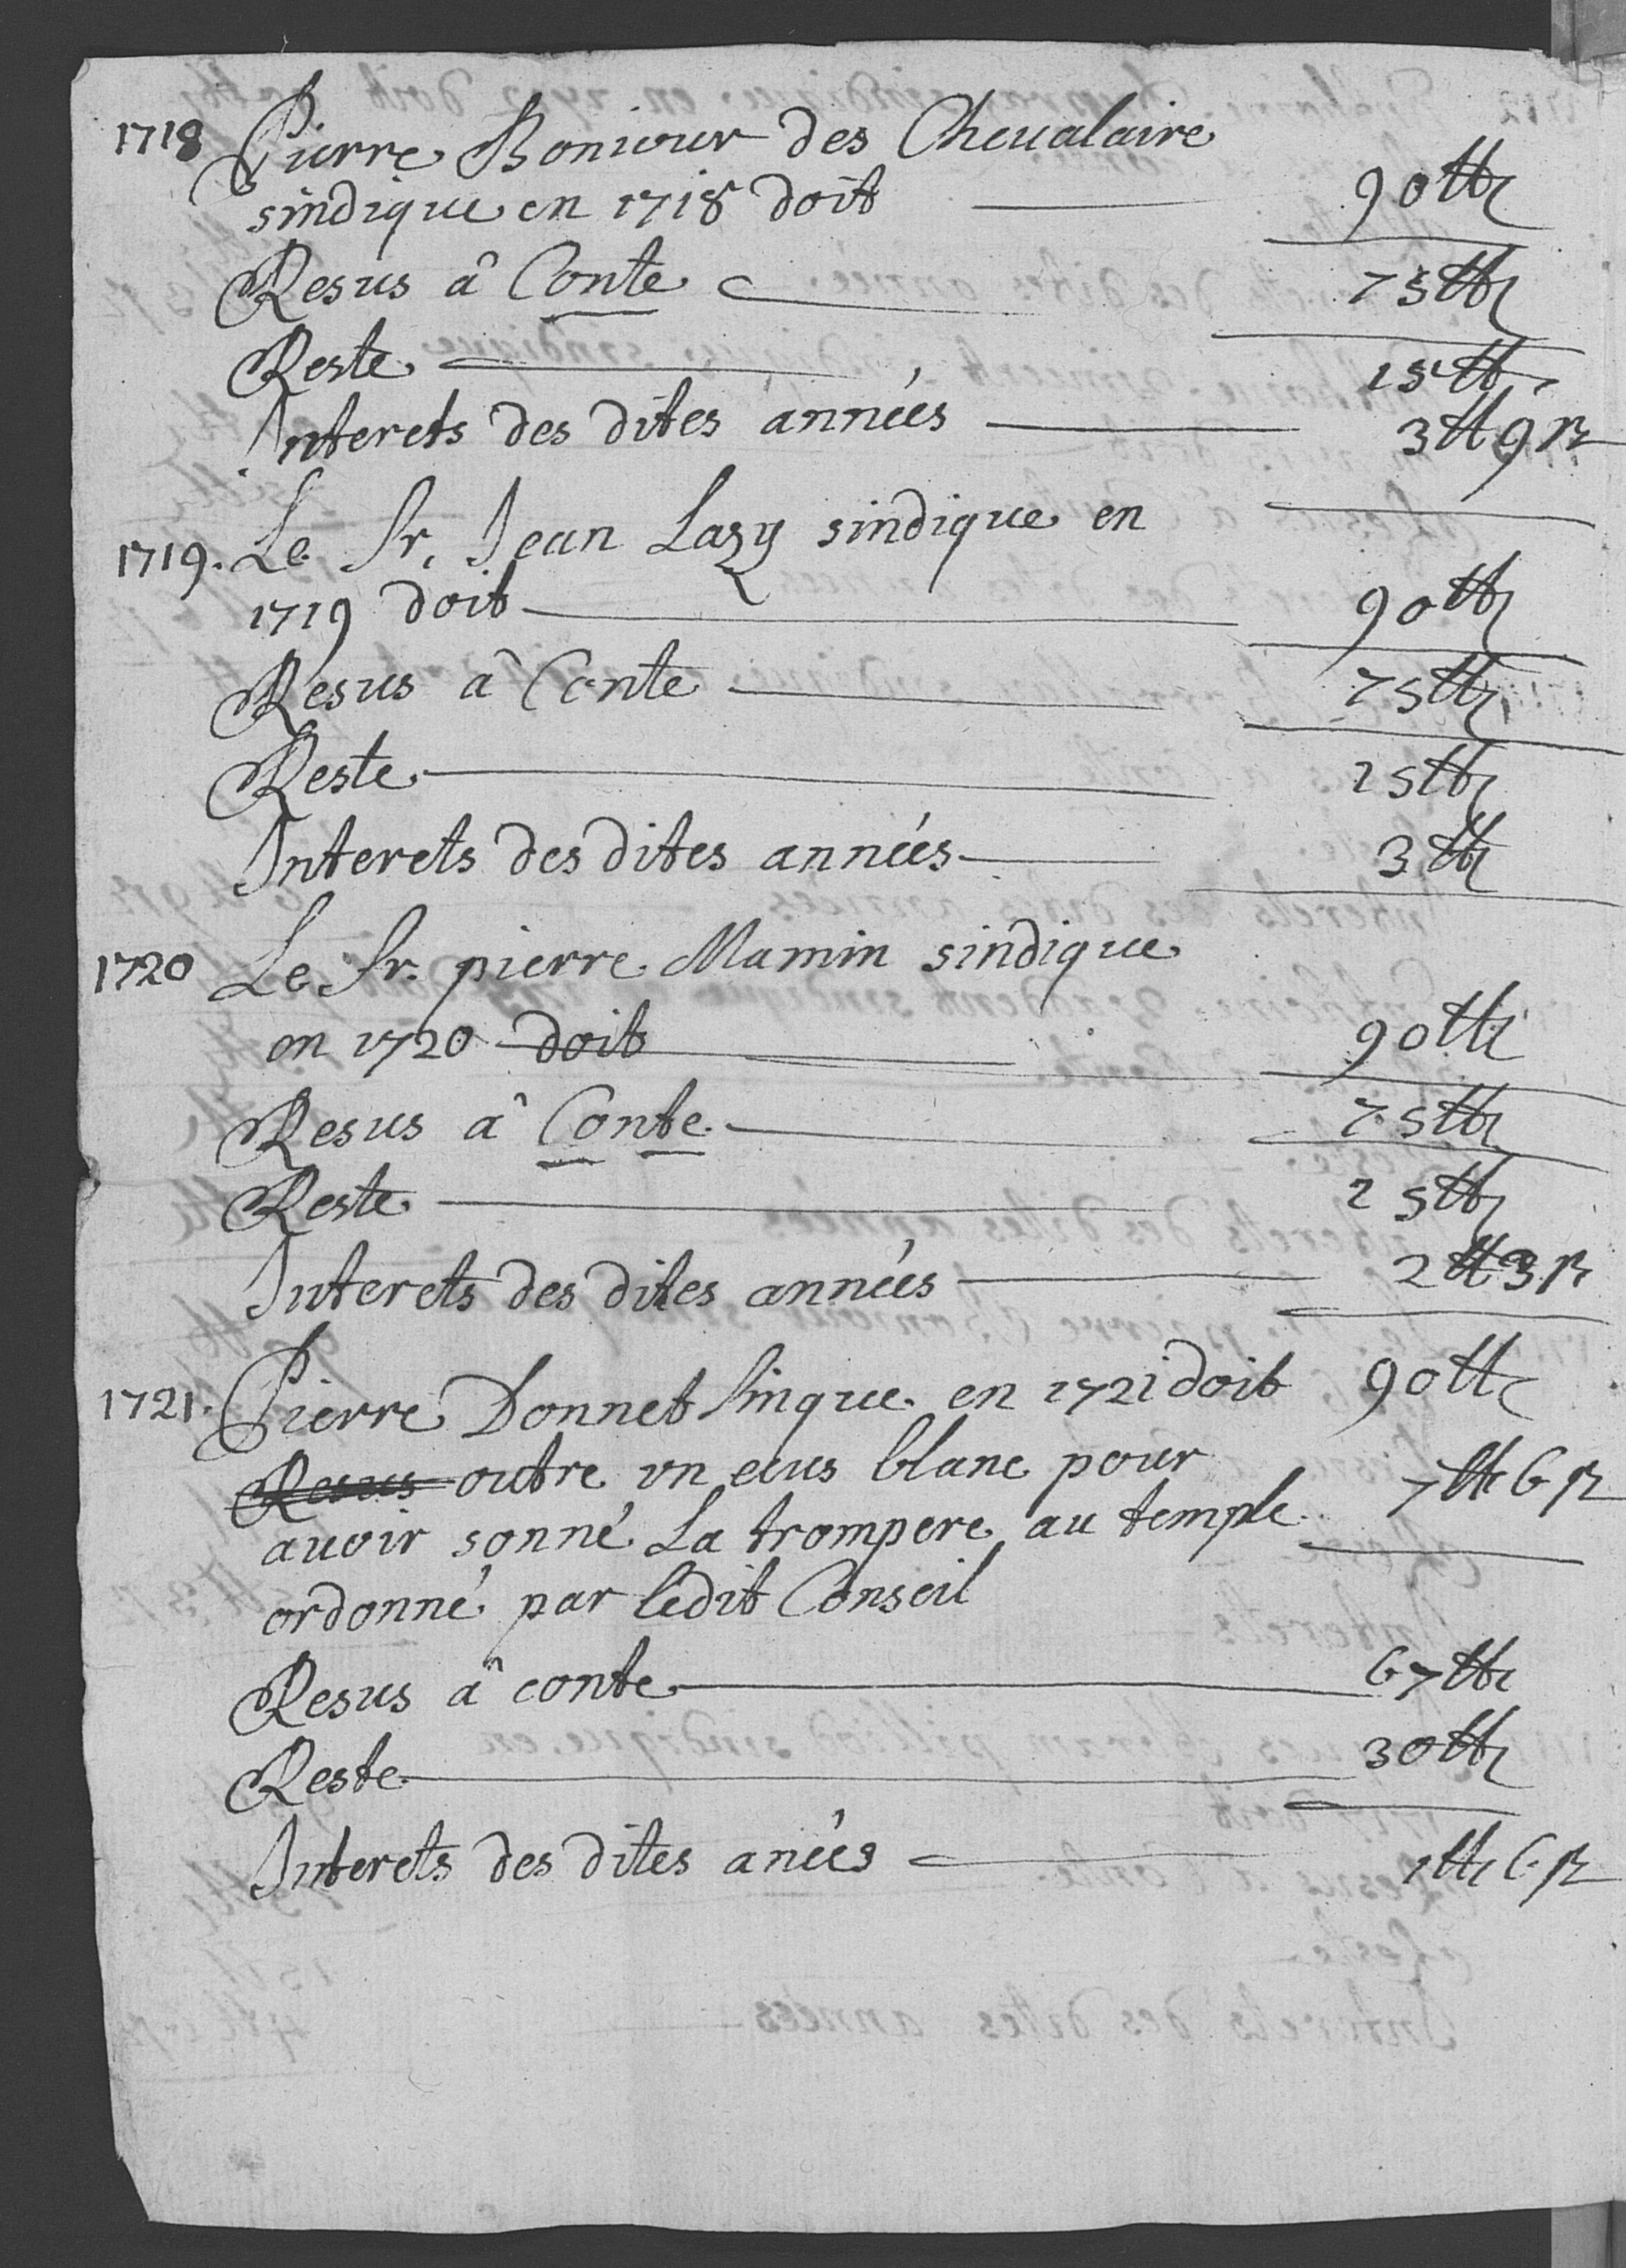 1718 Pierre Boniour des Cheualaire
sindique en 1718 doit 90 tt
Resus â Conte 75 tt
Reste 15 tt
Interets des dites années 3 tt 9 ß
1719. Le Sr. Jean Lazy sindique en
1719 doit 90 tt
Resus â Conte 75 tt
Reste 15 tt
Interets des dites années 3 tt
1720 Le Sr. pierre Mamin sindique
en 1720 doit 90 tt
Resus â Conte 75 tt
Reste 15 tt
Interets des dites années 2 tt 3 ß
1721. Pierre Donnet sinque en 1721 doit 90 tt
Resus outre vn ecus blanc pour 7 tt 6 ß
auoir sonné La trompere au temple
ordonné par ledit Conseil
Resus â conte 67 tt
Reste 30 tt
Interets des dites aneés 1 tt 6 ß